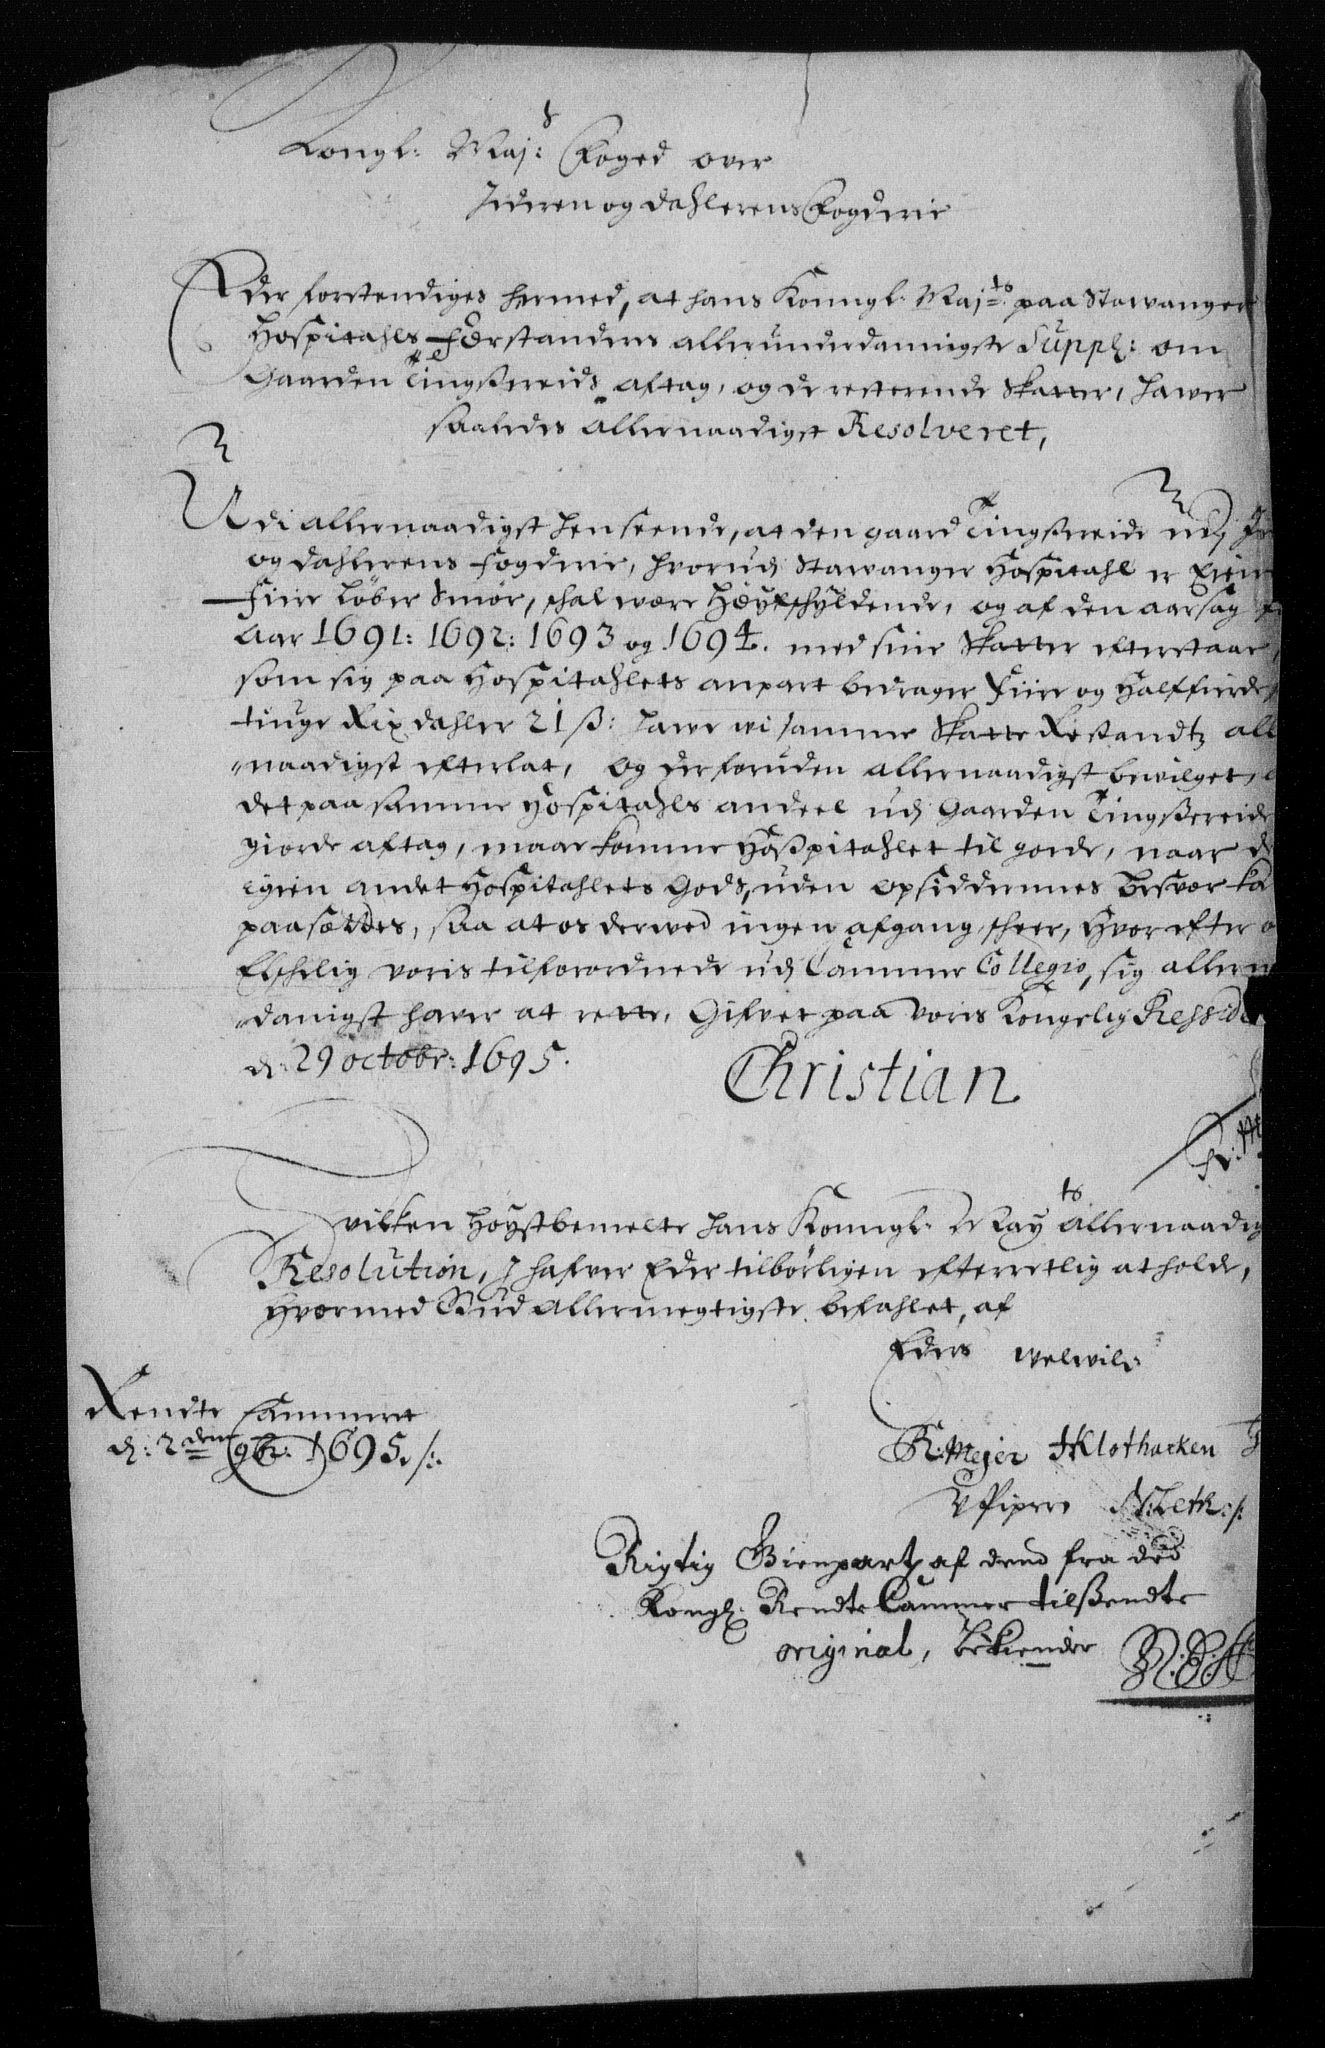 Kongl: Maj:s Foged over
Jederen og Dahlerens Fogderie
Eder forstendiges hermed, at hans Konngl: Maj:ts paa Stavanger
Hospitahls Forstanders allerunderdannigste Suppl: om
Gaarden Tingßereids aftag, og de resterende Skatter, hawer
saaledes allernaadigst Resolveret,
Udi allernaadigst henseende, at den gaard Tingßereide udj
og Dahlerens Fogderie, hvorudj Stawanger Hospitahl er
Fiire Løber Smør, schal være Høyt schyldende, og af den aarsag
Aar 1691: 1692: 1693 og 1694. med sine Skatter efterstaar,
som sig paa Hospitahlets anpart bedrager Fiire og Halffierde
tiuge Rixdahler 21 ß: hawe wi samme Skatte Restandtz all
naadigst efterlat, og derforuden allernaadigst bewilget,
det paa samme Hospitahls andeel udj Gaarden Tingßereide
giorde aftag, maa komme Hoßpitahlet til gode, naar
igien andet Hospitahlets Gods, uden opsiddernes besvær
paasættes, saa at os derwed ingen afgang scheer, Hvor efter
Elschelig voris tilforordnede udj Cammer Collegio, sig aller
danigst haver at rette, Gifvet paa Voris Kongelig Ressid
d: 29 octobr: 1695.
Christian
Hvilken Høystbemelte hans Konngl: May:ts allernaadig
Resolution, J hafver Eder tilbørligen efterretlig at holde,
Hvormed Gud Allermegtigste befahlet, af
Eders welwil:
Rendte Cammeret
d: 2den 9br: 1695 ./.
R: Mejer H Klothacken
V Piper N: Leth ./.
Rigtig Gienpart af dend fra ded
Kongl: Rendte Cammer tilßendte
original, Bekiender